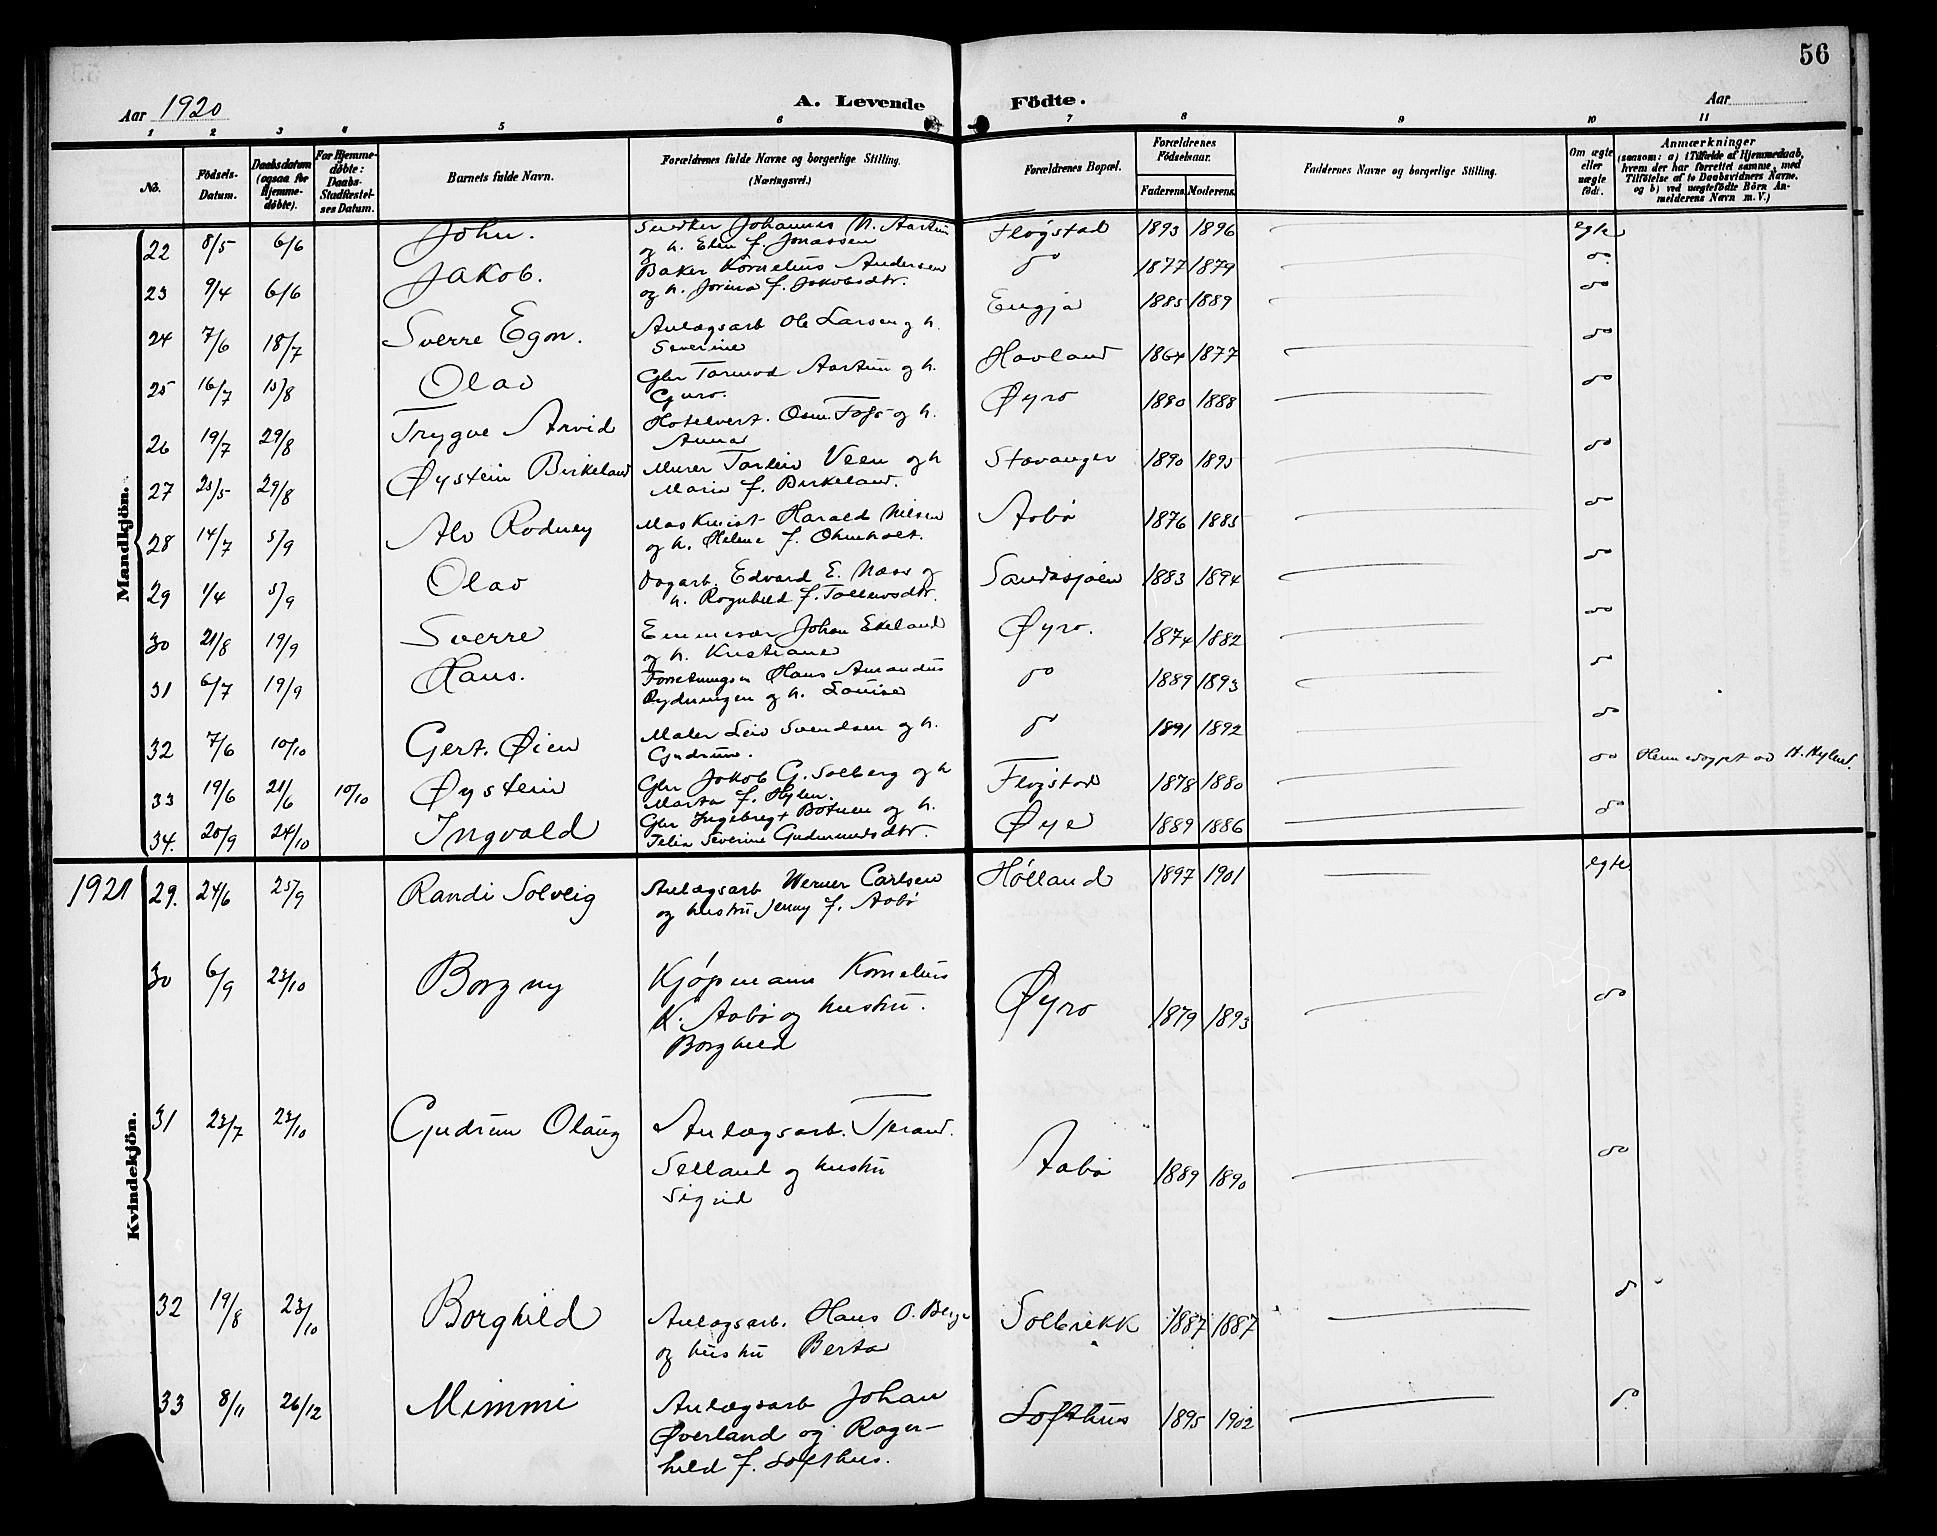 56
Aar 1920 A. Levende Födte. Aar
1 2 3 4 5 6 7 8 9 10 11
No. Födsels-Datum. Daabsdatum (ogsaa for Hjemme-döbte). For Hjemme-döbte: Daabs-Stadfæstel-ses Datum. Barnets fulde Navn. Forældrenes fulde Navne og borgerlige Stilling. (Næringsvei.) Forældrenes Bopæl. Forældrenes Födselsaar. Faderens. Moderens. Faddernes Navne og borgerlige Stilling. Om ægte eller uægte födt. Anmærkninger (saasom: a) i Tilfælde af Hjemmedaab, hvem der har forrettet samme, med Tilföielse af to Daabsvidners Navne, og b) ved uægtefödte Börn An-melderens Navn m. V.)
Mandkjön.
22 8/5 6/6 John. Snedker Johannes N. Aartun Flogstad 1893 1896 egte
og h. Elen f. Jonassen
23 9/4 6/6 Jakob. Baker Kornelius Andersen do 1877 1879 do
og h. Jorina f. Jakobsdtr.
24 7/6 18/7 Sverre Egon. Anlægsarb Ole Larsen og h. Engja 1885 1889 do
Severine
25 16/7 15/8 Olav Gbr Tormod Aartun og h. Havland 1864 1877 do
Guro.
26 19/7 29/8 Trygve Arvid Hotelvert. Osm. Foss og h. Øyro 1880 1888 do
Anna
27 23/5 29/8 Øystein Birkeland Murer Torleiv Veen og h Stavanger 1890 1895 do
Marie f. Birkeland.
28 14/7 5/9 Alv Rodney Maskinist Harald Nilsen Aabö 1876 1885 do
og h. Helene f. Ohmholt.
29 1/4 5/9 Olav Dagarb. Edvard E. Næss og Sandsjøen 1883 1894 do
h. Ragnhild f. Tollevsdtr.
30 21/8 19/9 Sverre Johan Ekeland Øyro. 1874 1882 do
og h. Kristiane
31 6/7 19/9 Hans. Forretningsm Hans Amandus do 1889 1893 do
Rydningen og h. Louise
32 7/6 10/10 Gert. Øien Maler Leiv Svendsen og h. do 1891 1892 do
Gudrun.
33 19/6 21/6 10/10 Øystein Gbr Jakob G. Solberg og h Flogstad 1878 1880 do Hjemmedøypt av H. Hylen.
Marta f. Hylen.
34. 20/9 24/10 Ingvald Gbr Ingebregt Botnen og h. Øye 1889 1886 do
Severine Gudmundsdtr.
Kvindekjön.
1921 29. 24/6 25/9 Randi Solveig Anlægsarb Werner Carlsen Hølland 1897 1901 egte
og hustru Jenny f. Aabö
30 6/9 23/10 Borgny Kjøpmann Kornelius Øyro 1879 1893 do
K. Aabö og hustru.
Borghild
31 23/7 23/10 Gudrun Olaug Anlægsarb. Tjerand. Aabö 1889 1890 do
Selland og hustru
Sigrid
32 19/8 23/10 Borghild Anlægsarb. Hans O. Berge Solbrekk 1887 1887 do
og hustru Berta
33 8/11 26/12 Mimmi Anlægsarb Johan Lofthus 1895 1902 do
Øverland og Ragn-
hild f. Lofthus.